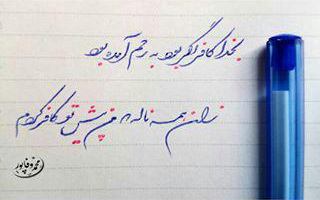 بخدا کافر اگر بود به رحم آمده بود
زان همه ناله که من پیش تو کافر کردم